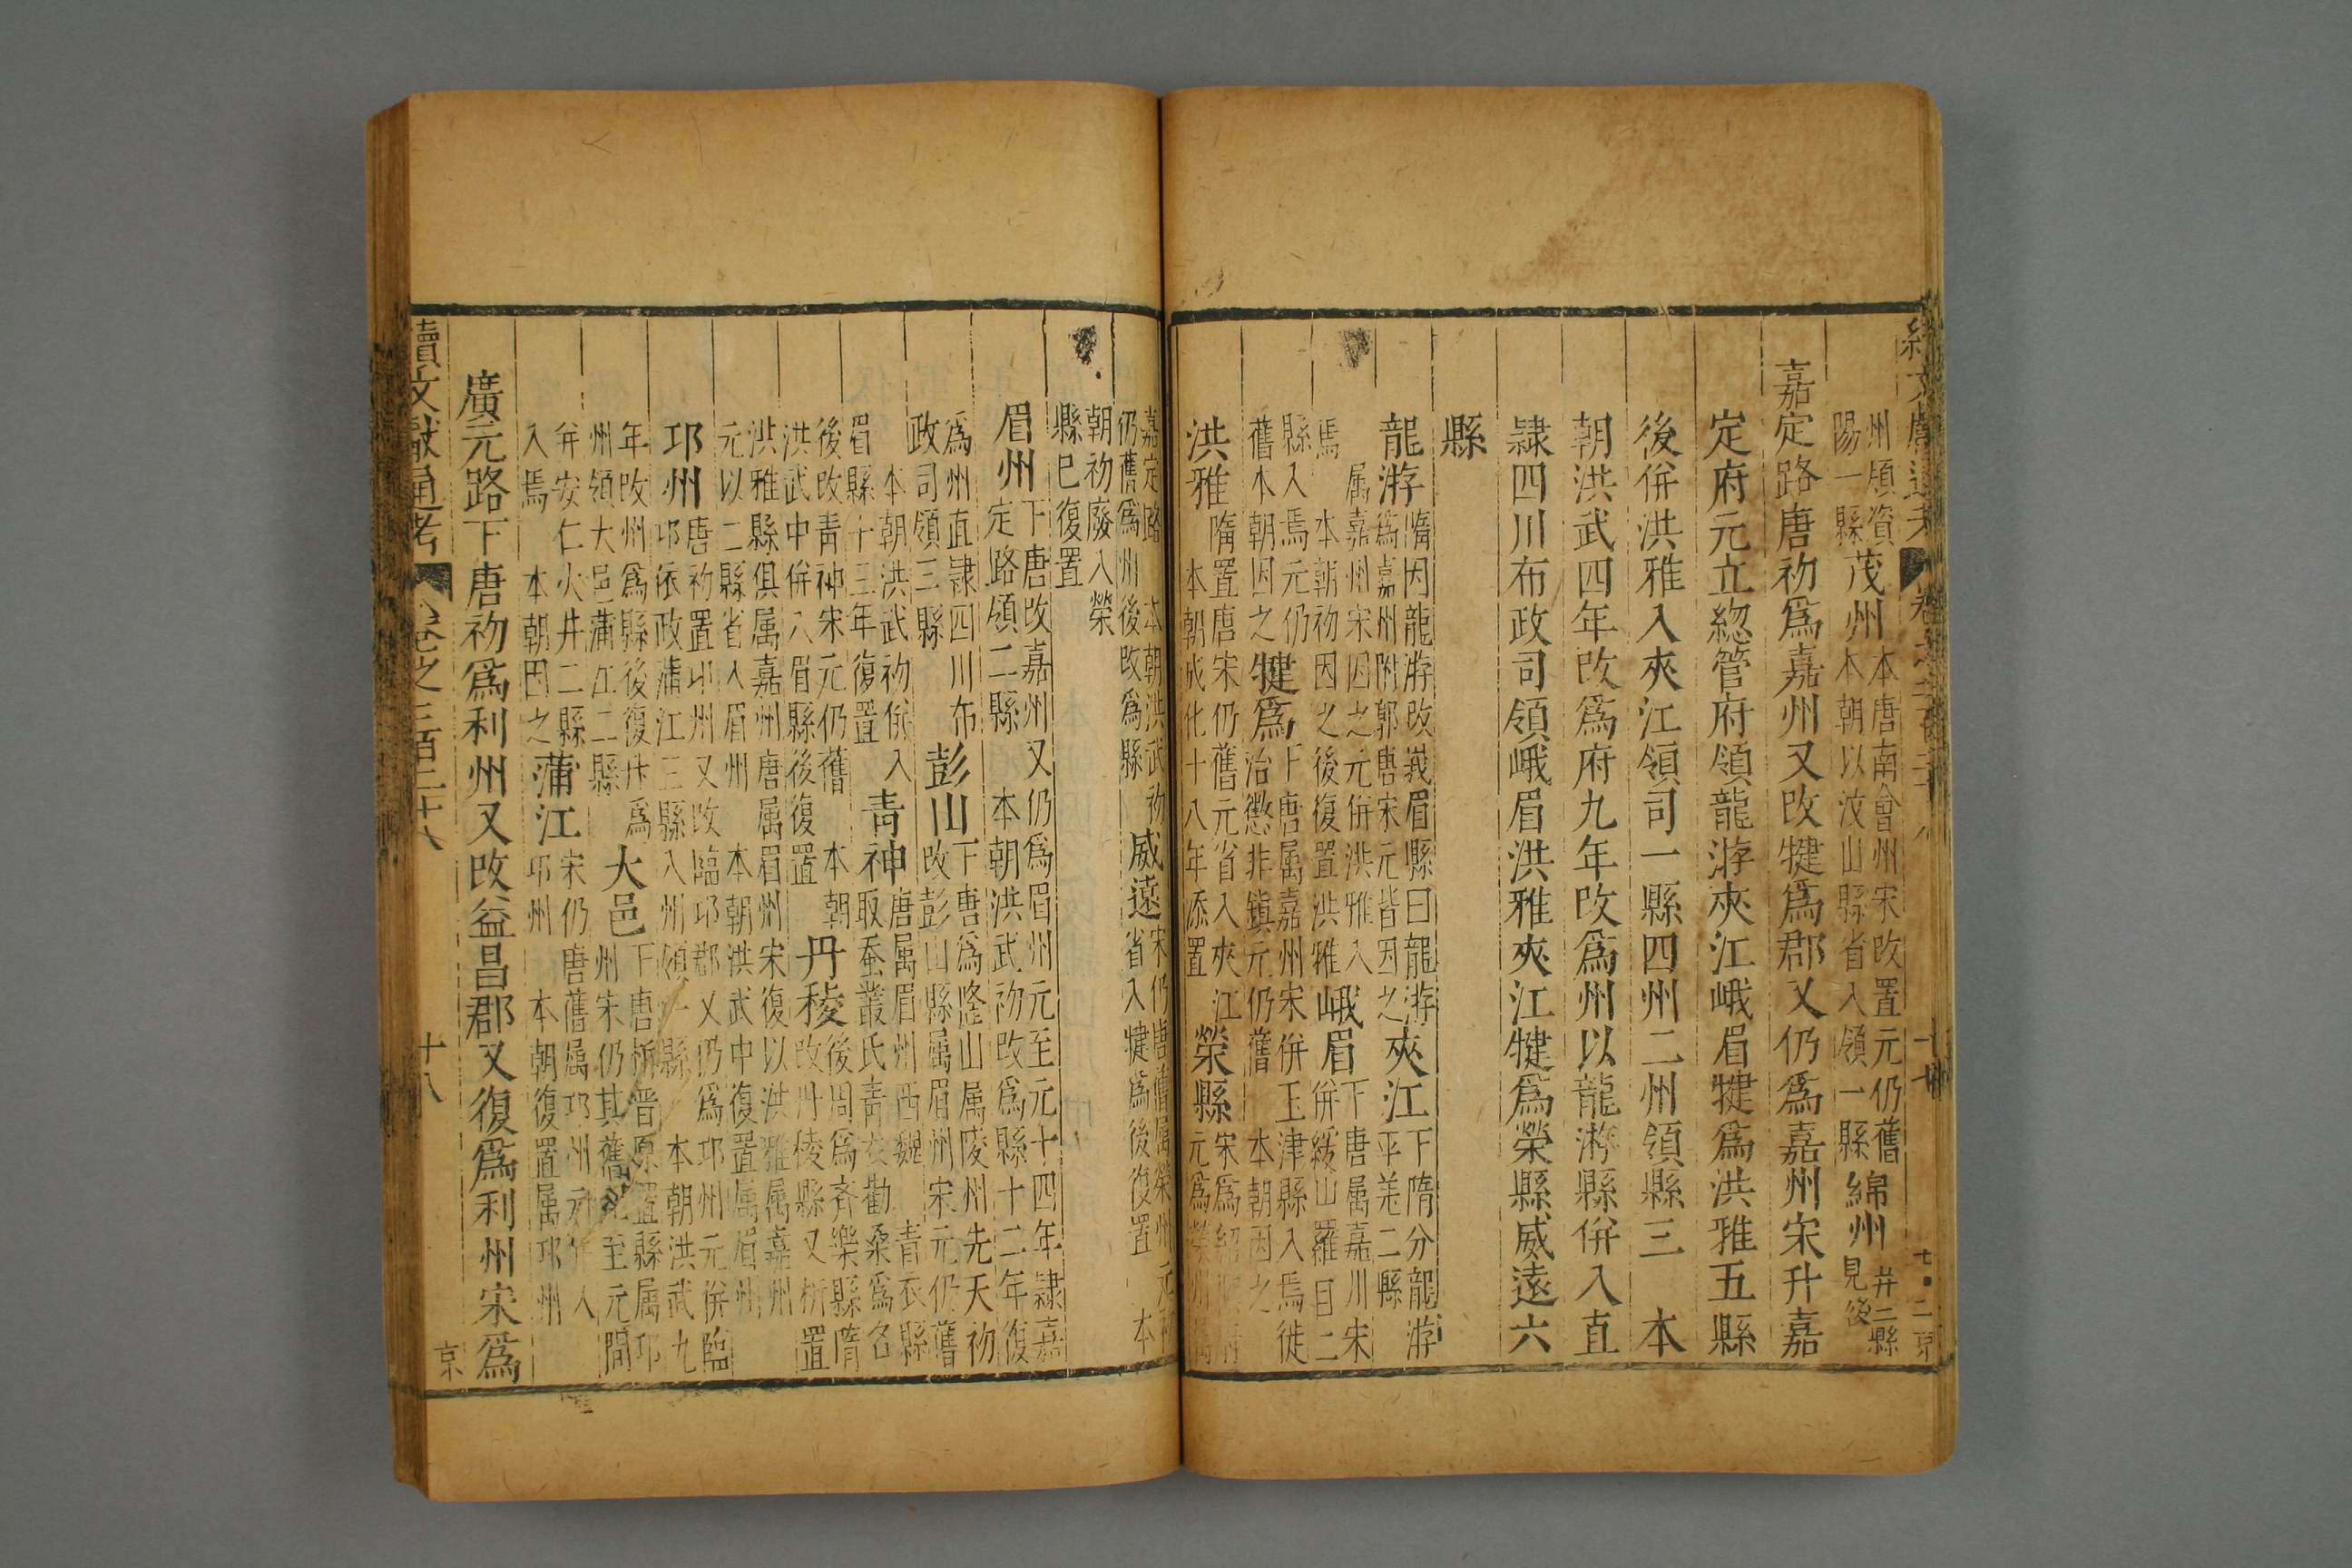 州領資
陽一縣
茂州
本唐南會州宋改置元仍舊
本朝以汶山縣省入領一縣
綿州
并二縣
見後
嘉定路唐初爲嘉州又改犍爲郡又仍爲嘉州宋升嘉
定府元立緫管府領龍游夾江峨眉犍爲洪雅五縣
後併洪雅入夾江領司一縣四州二州領縣三 本
朝洪武四年改爲府九年改爲州以龍游縣併入直
隷四川布政司領峨眉洪雅夾江犍爲榮縣威遠六
縣
龍游
隋因龍游改峩眉縣曰龍游
爲嘉州附郭唐宋元皆因之
夾江
下隋分龍游
平羌二縣
属嘉州宋因之元併洪雅入
焉 本朝初因之後復置洪雅
下唐属嘉川宋
峨眉
併綏山羅目二
縣入焉元仍
舊本朝因之
犍爲
下唐属嘉州宋併玉津縣入焉徙
治懲非鎮元仍舊 本朝因之
洪雅
隋置唐宋仍舊元省入夾江
本朝成化十八年添置
榮縣
宋爲紹
元爲榮州
嘉定路 本朝洪武初
仍舊爲州後改爲縣
威遠
宋仍唐舊属榮州元
省入犍爲後復置 本
朝初廢入榮
縣已復置
眉州
下唐改嘉州又仍爲眉州元至元十四年隷嘉
定路領二縣 本朝洪武初改爲縣十二年復
爲州直隷四川布
政司領三縣
彭山
下唐爲隆山属陵州先天初
改彭山縣属眉州宋元仍舊
本朝洪武初併入
眉縣十三年復置
青神
唐属眉州西魏 青衣縣
取蚕叢氏青衣勸桑爲名
後改青神宋元仍舊 本朝
洪武中併入眉縣後復置
丹稜
後周爲齊樂縣隋
改丹稜縣又析置
洪雅縣俱属嘉州唐属眉州宋復以洪雅属嘉州
元以二縣省入眉州 本朝洪武中復置属眉州
邛州
唐初置邛州又改臨邛郡又仍爲邛州元併臨
邛依政蒲江三縣入州領一縣 本朝洪武九
年改州爲縣後復升爲
州領大邑蒲江二縣
大邑
下唐析晋原置縣属邛
州宋仍其舊元至元間
并安仁火井二縣
入焉 本朝因之
蒲江
宋仍唐舊属邛州元并入
邛州 本朝復置属邛州
廣元路下唐初爲利州又改益昌郡又復爲利州宋爲
續文獻通考
卷之三百二十八
十八
京